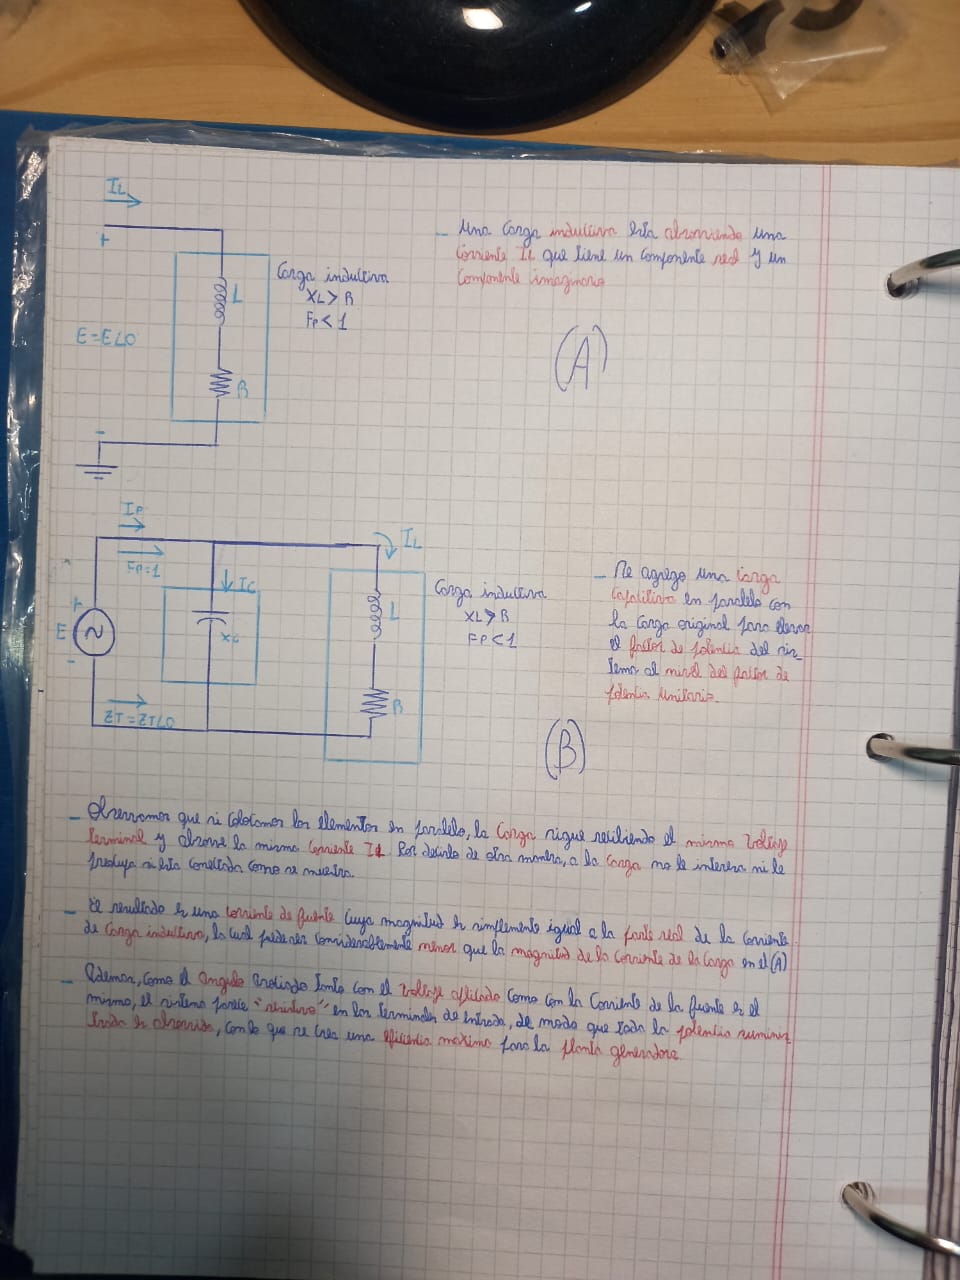 IL
+
Una carga inductiva esta absorviendo una
corriente IL que tiene un componente real y un
componente imaginario
Carga inductiva
XL > R
Fp < 1
L
E = E∠0
R
(A)
-
IP
Fp=1
IL
IC
+
E
-
XC
L
R
ZT = ZT∠0
Carga inductiva
XL > R
FP < 1
- Se agrego una carga
capacitiva en paralelo con
la carga original para elevar
el factor de potencia del sis-
tema al nivel del factor de
potencia unitario.
(B)
- Observamos que si colocamos los elementos en paralelo, la carga sigue recibiendo el mismo voltaje
terminal y absorve la misma corriente IL. Por decirlo de otra manera, a la carga no le interesa ni le
si esta conectada como se muestra.
- El resultado es una corriente de fuente cuya magnitud es simplemente igual a la parte real de la corriente
de carga inductiva, la cual puede ser considerablemente menor que la magnitud de la corriente de la carga en el (A)
- Ademas, como el angulo asociado tanto con el voltaje aplicado como con la corriente de la fuente es el
mismo, el sistema parece "resistivo" en los terminales de entrada, de modo que toda la potencia suminis-
trada es absorvida, con lo que se crea una eficiencia maxima para la planta generadora